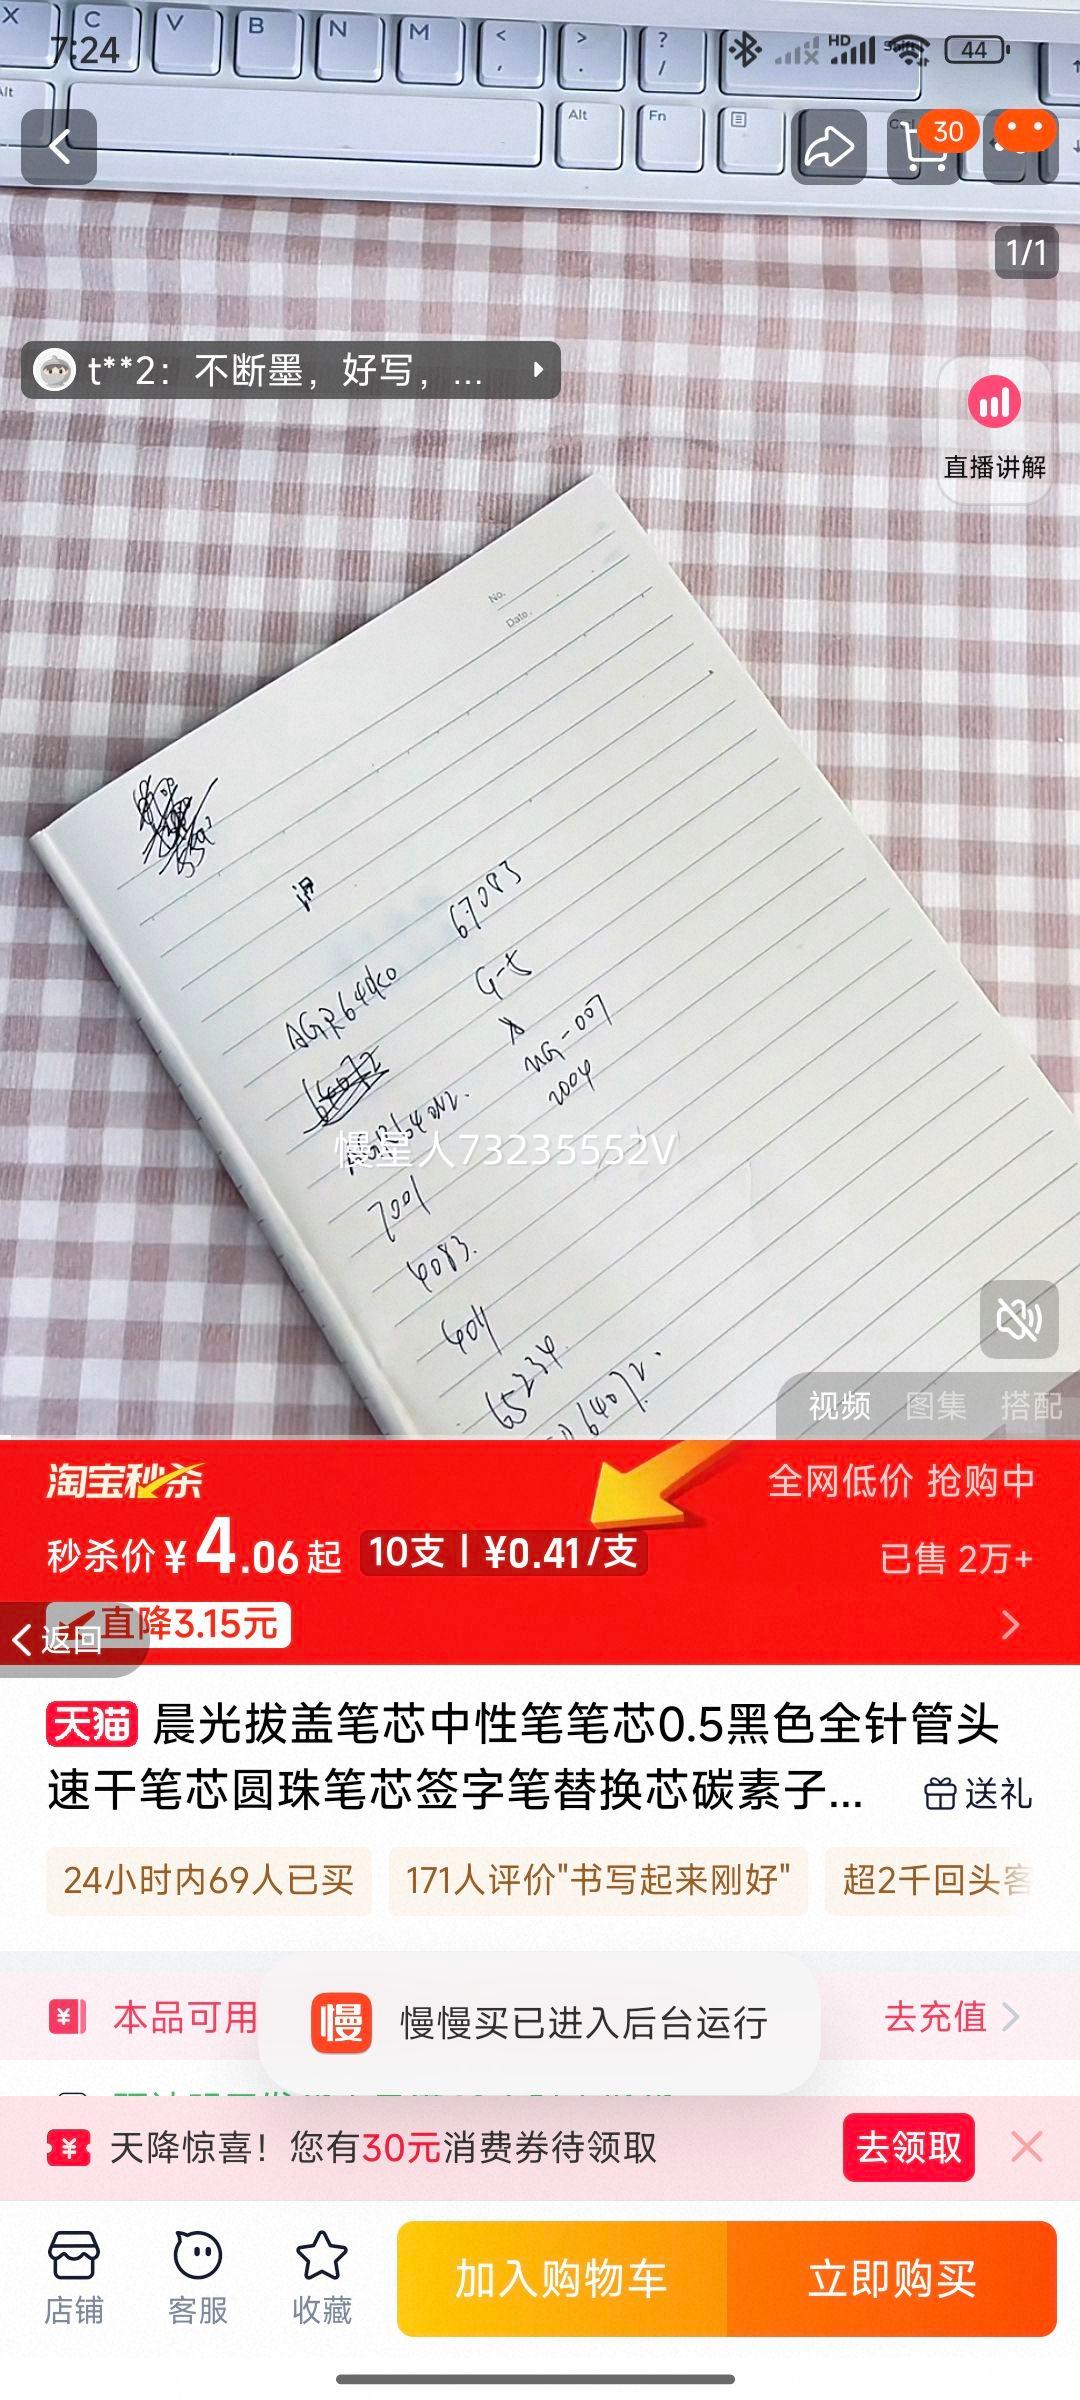 7:24
HD
44
X
C
V
B
N
M
<
,
>
.
?
/
Alt
Alt
Fn
30
1/1
t**2：不断墨，好写，...
直播讲解
No.
Date.
67083
G-5
AGR64
MG-007
2004
7001
4083.
6011
65234
6407
慢星人73235552V
视频 图集 搭配
淘宝秒杀
全网低价 抢购中
秒杀价 ¥4.06起 10支 | ¥0.41/支
已售 2万+
直降3.15元
返回
天猫 晨光拔盖笔芯中性笔笔芯0.5黑色全针管头
速干笔芯圆珠笔芯签字笔替换芯碳素子...
送礼
24小时内69人已买 171人评价"书写起来刚好" 超2千回头客
本品可用
去充值
慢 慢慢买已进入后台运行
天降惊喜！您有30元消费券待领取
去领取
店铺 客服 收藏
加入购物车 立即购买